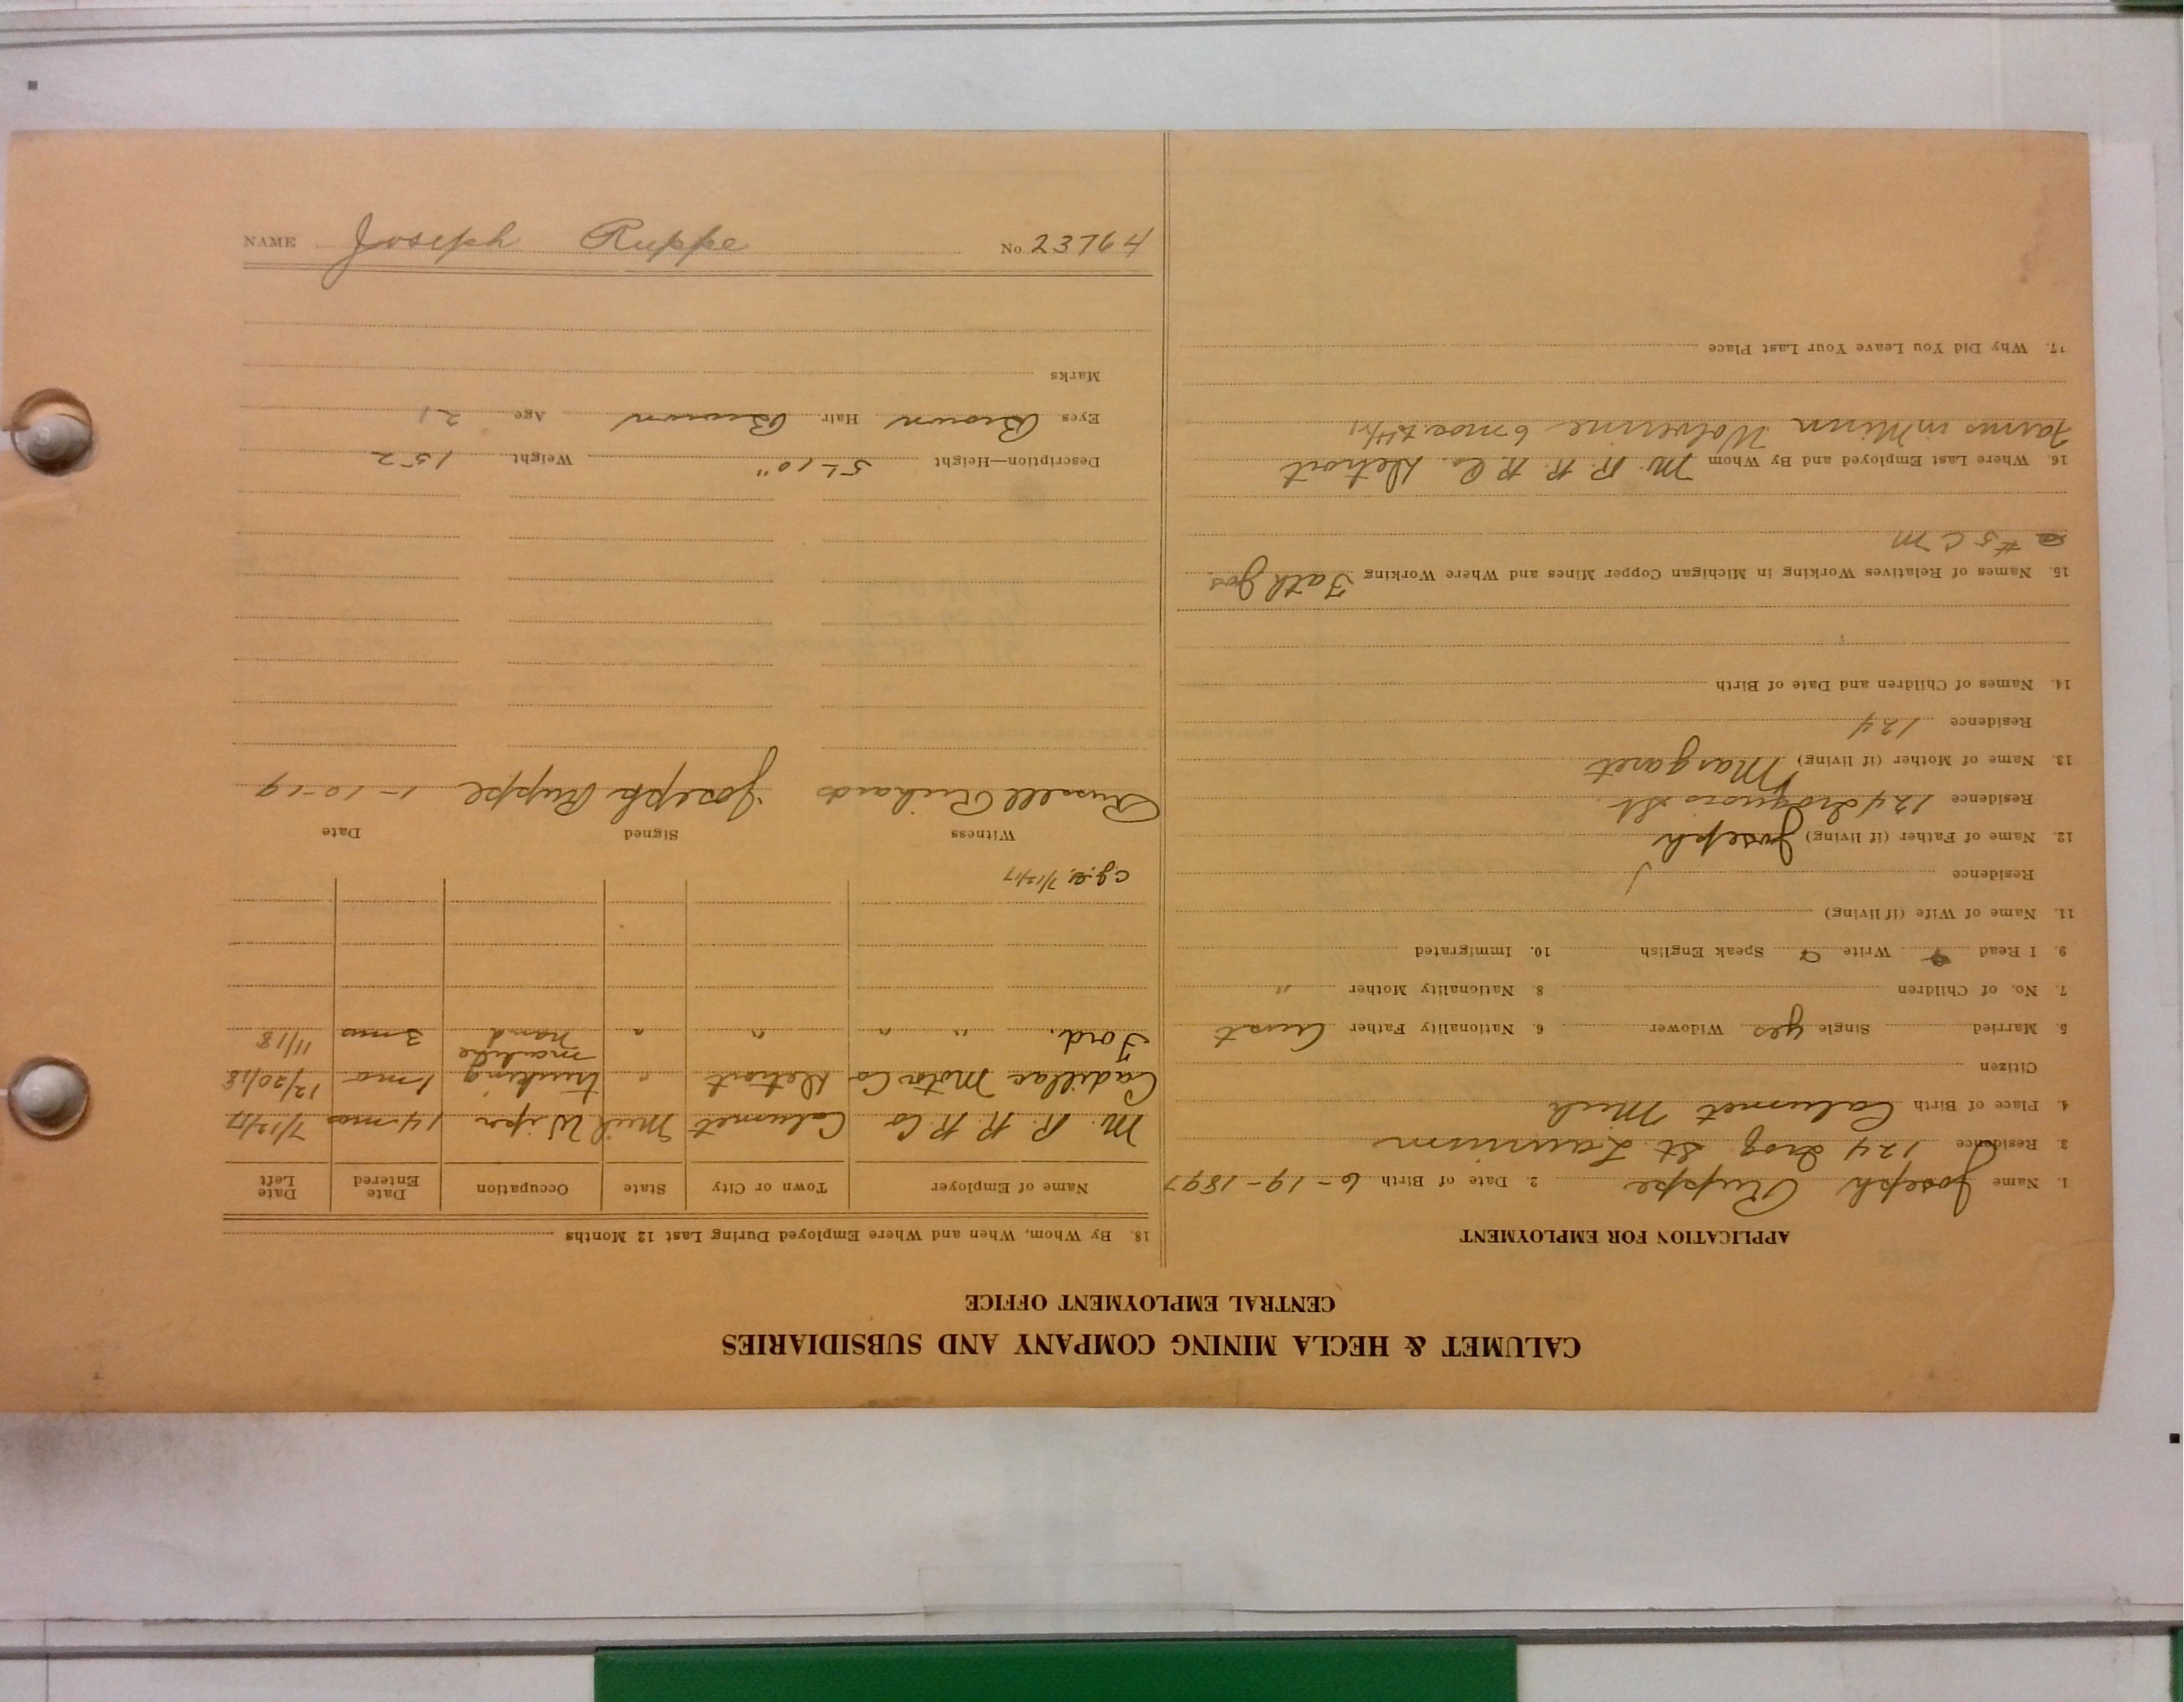 CALUMET & HECLA MINING COMPANY AND SUBSIDIARIES
CENTRAL EMPLOYMENT OFFICE
APPLICATION FOR EMPLOYMENT
1. Name Joseph Ruppe 2. Date of Birth 6-19-1897
3. Residence 124 Iroq St Laurium
4. Place of Birth Calumet Mich
Citizen
5. Married Single yes Widower 6. Nationality Father Aust
7. No. of Children 8. Nationality Mother "
9. I Read Write Speak English 10. Immigrated
11. Name of Wife (if living)
Residence
12. Name of Father (if living) Joseph
Residence 124 Iroquois St.
13. Name of Mother (if living) Margaret
Residence 124
14. Names of Children and Date of Birth
15. Names of Relatives Working in Michigan Copper Mines and Where Working Fath Jos.
#5 C M
16. Where Last Employed and By Whom M. R. R. R Co. Detroit
Farms in Minn Wolverine 6 mos.
17. Why Did You Leave Your Last Place
18. By Whom, When and Where Employed During Last 12 Months
Name of Employer Town or City State Occupation Date Entered Date Left
M. R. R. R. Co Calumet Mich Wiper 14 mos 7/12/17
Cadillac Motor Co Detroit " trucking 1 mo 12/20/18
Ford. " " " " machine hand 3 mos 11/18
7/12/17
Witness Signed Date
Russell Richards Joseph Ruppe 1-10-19
Description—Height 5'-10" Weight 152
Eyes Brown Hair Brown Age 21
Marks
NAME Joseph Ruppe No. 23764